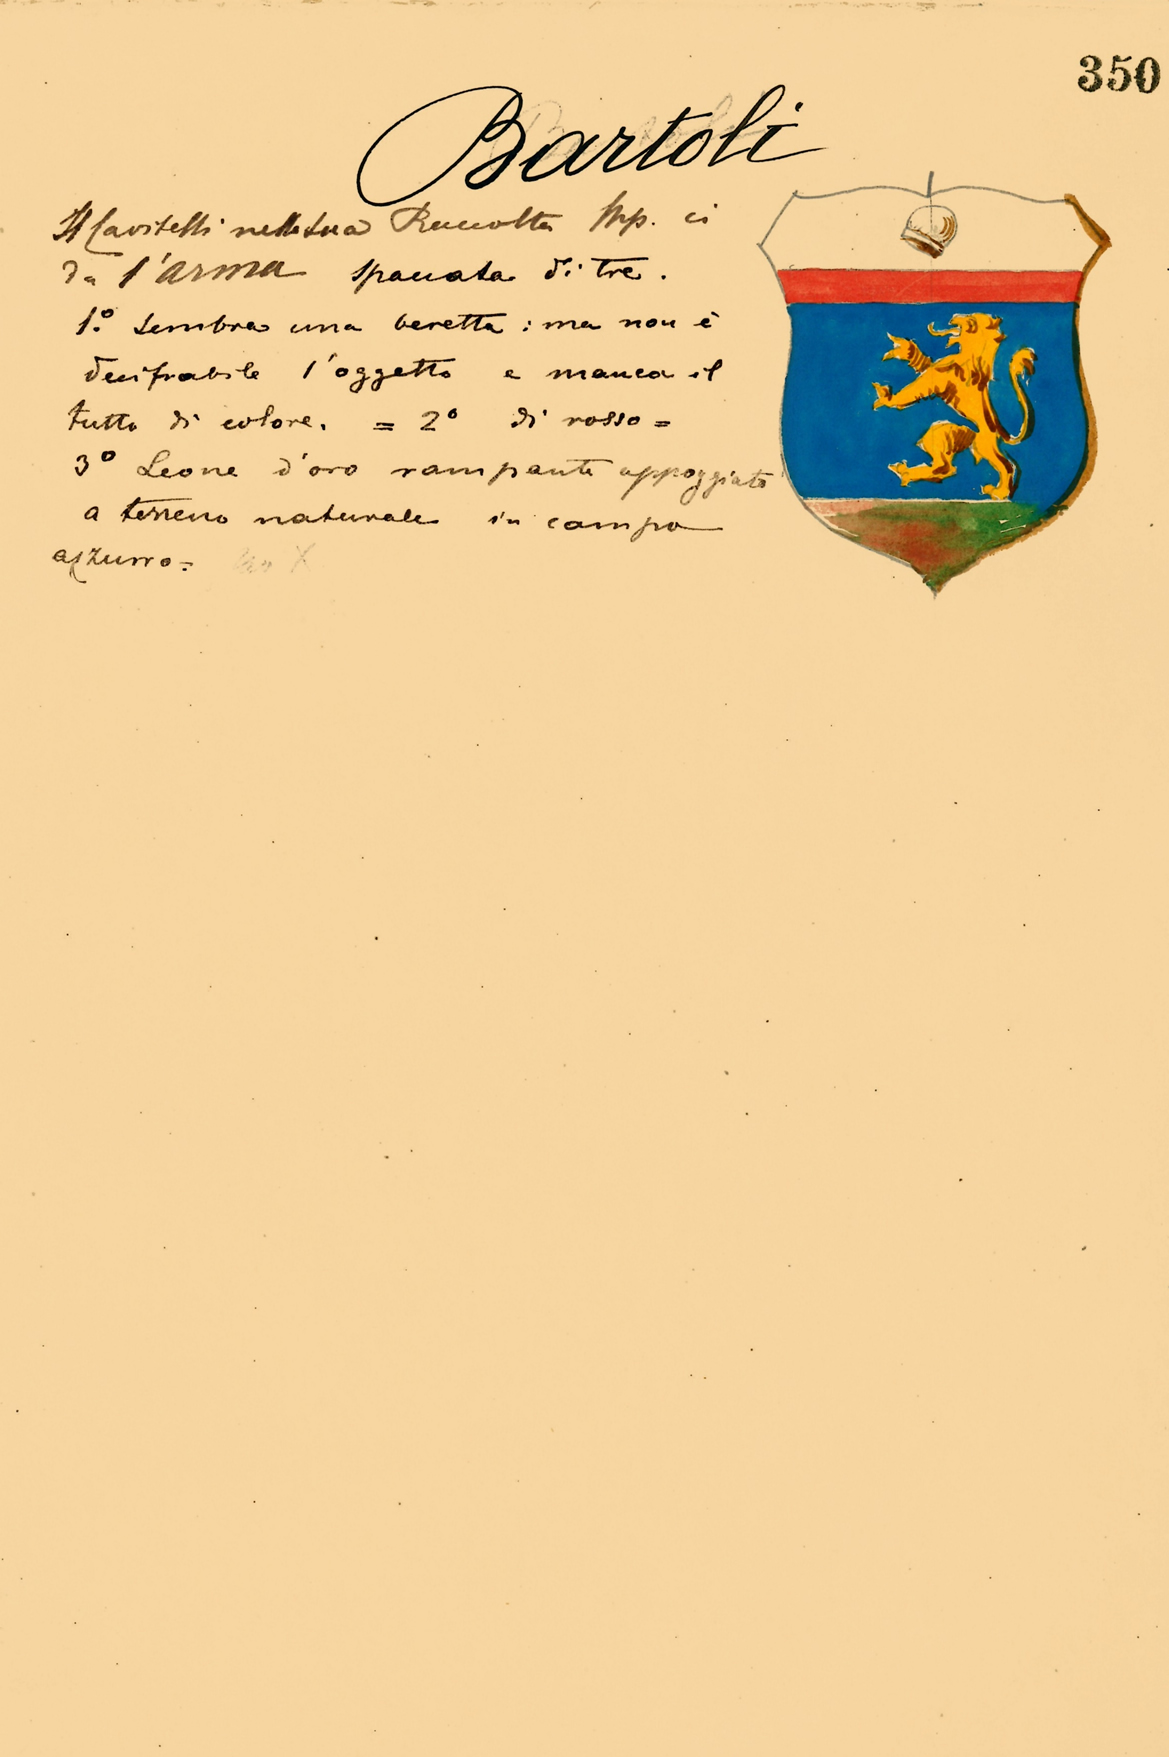 350
Bartoli
Il Cavitelli nella sua Raccolta Mp. ci
da l'arma spaccata di tre.
1.º Sembra una beretta : ma non è
decifrabile l'oggetto e manca il
tutto di colore. = 2º di rosso =
3º Leone d'oro rampante appoggiato
a terreno naturale in campo
azzurro =